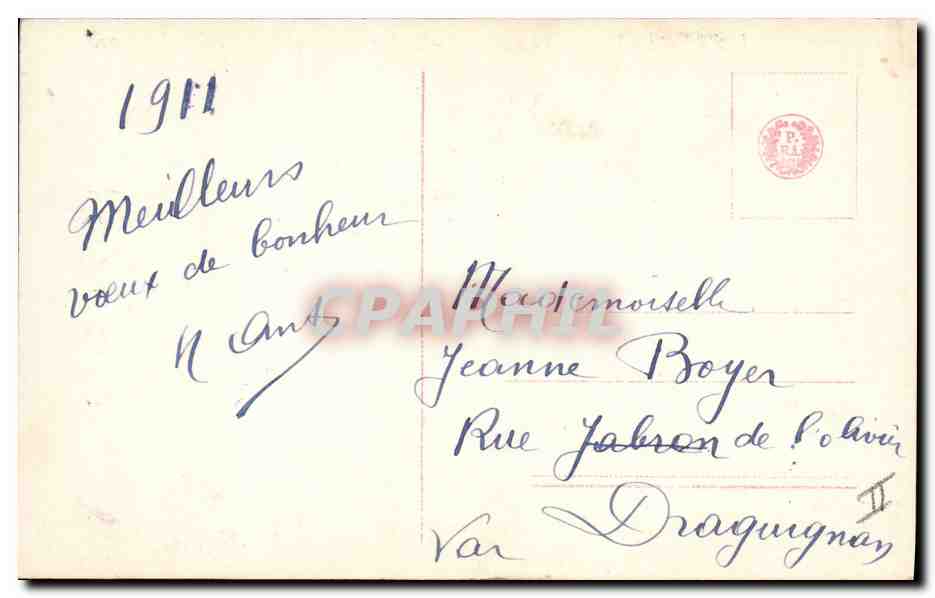 1911
Meilleurs
vœux de bonheur
CPAPHIL
Mademoiselle
Jeanne Boyer
Rue Jabron de l'olivier
Draguignan
Var
II
P.